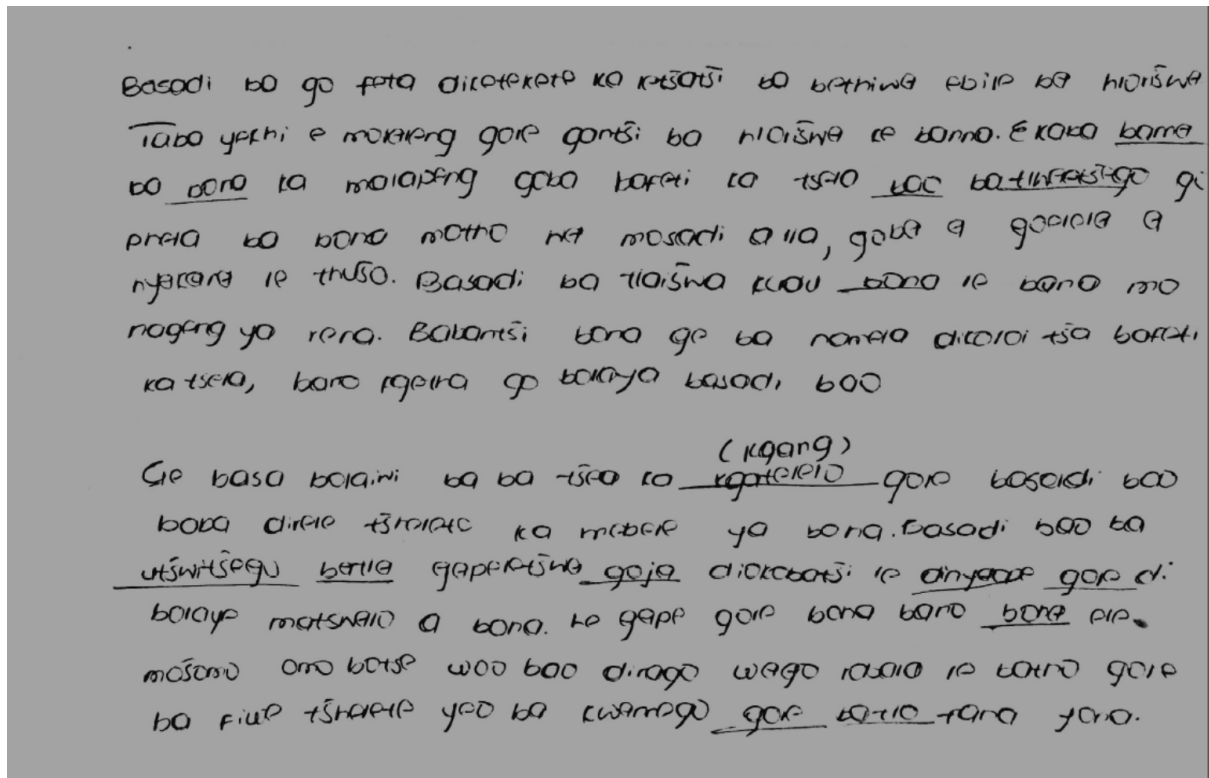 Basadi ba go feta dikete kete ka letšatši ba bethiwa ebile ba hlorišwa
Taba yethi e makareng gore gantši ba hlaišwa ke banna. E kaba bama
ba bona ka malapeng goba bafeti ka tsela bao batlwaetšego gi
phela ba bona motho ke mosadi a lla, goba a goelela a
nyakana le thušo. Basadi ba tlaišwa kudu bona le bana mo
nageng ya rena. Babantši bona ge ba namela dikoloi tša bafeti
ka tsela, bano feleha go bolaya basadi bao
(kgang)
Ge basa bolaiwi ba ba tšea ka kgatelelo gore basadi bao
baba direle tšhelete ka mebele ya bona. Basadi bao ba
utšwitšegu betlla gapeletšwa goja diokobatši le dinyaope gore di
bolaye matshwalo a bona. Le gape gore bona bano bona ele
mošomo omo botse woo bao dirago wago rabala le batho gore
ba fiwe tšhelete yeo ba kwanego gore batlo fana yona.